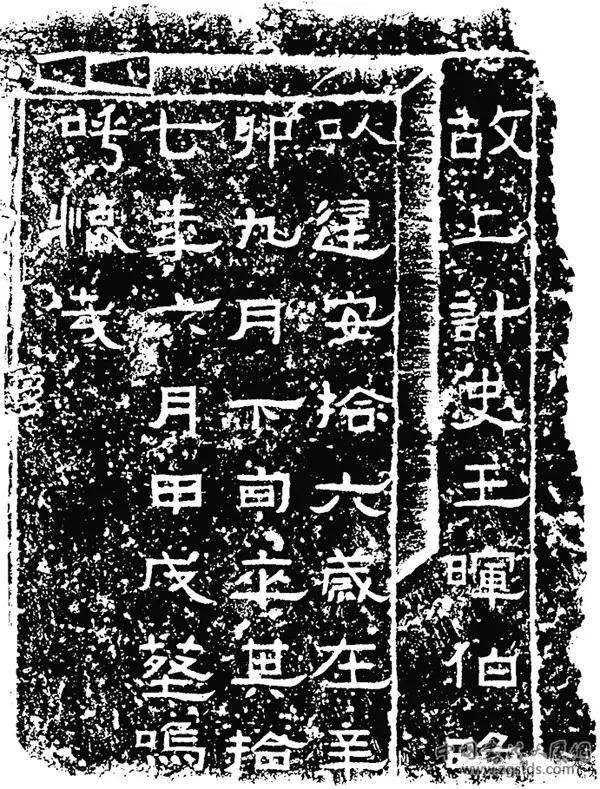 故上計史王暉伯昭
以建安拾六歲在辛
卯九月下旬卒其拾
七年六月甲戊塟嗚
呼懷㦲
www.zgsfds.com